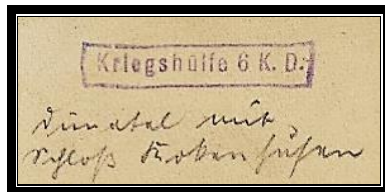 Kriegshülfe 6 K. D.
Dünatal mit
Schloß Kokenhusen